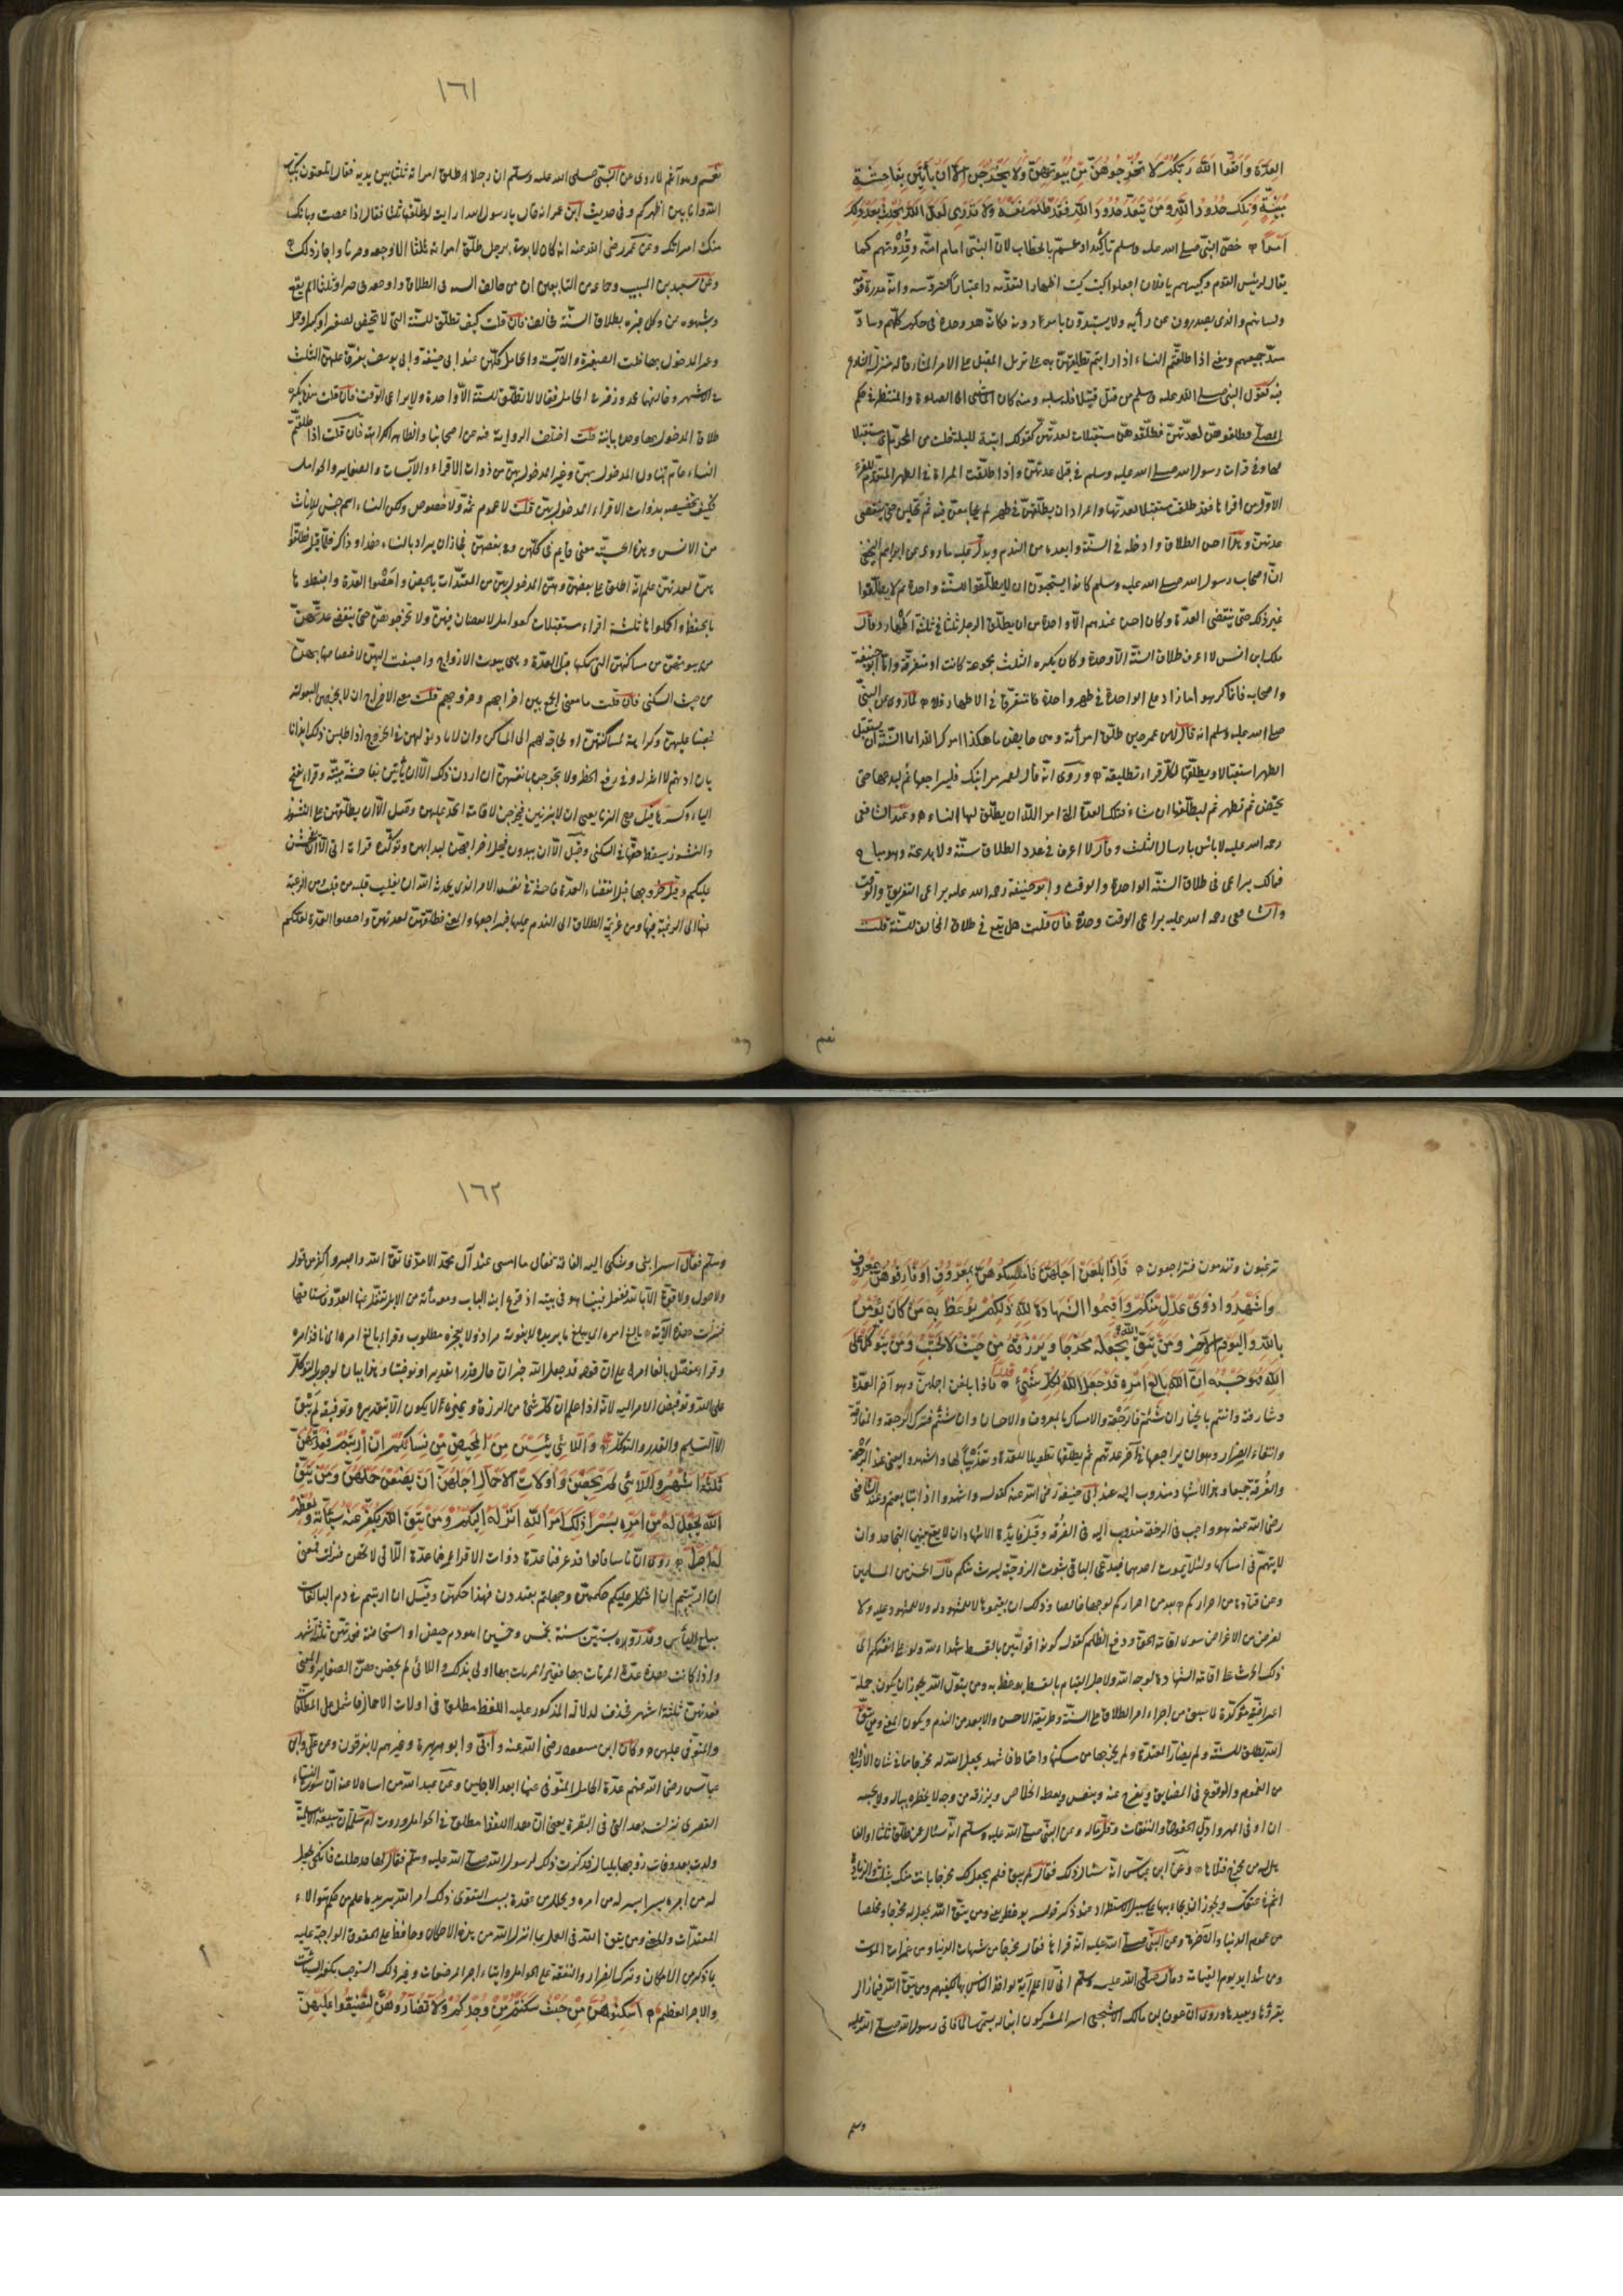 العدة واتقوا الله ربكم لا تخرجوهن من بيوتهن ولا يخرجن الا ان يأتين بفاحشة
مبينة وتلك حدود الله ومن يتعد حدود الله فقد ظلم نفسه لا تدرى لعل الله يحدث بعد ذلك
امرا خص النبى صلى الله عليه وسلم بالخطاب لان النبى امام امته وقدوتهم كما
يقال لرئيس القوم وكبيرهم يا فلان افعلوا كيت كيت اظهارا لتقدمه واعتبارا لترؤسه وانه مدره قومه
ولسانهم والذى يصدرون عن رأيه ولا يستبدون بامر دونه فكان هو وحده فى حكم كلهم وسادّا
مسد جميعهم ومعنى اذا طلقتم النساء اذا اردتم تطليقهن على تنزيل المقبل على الامر المشارف له منزلة الشارع
فيه كقوله النبى صلى الله عليه وسلم من قتل قتيلا فله سلبه ومنه كان الماشى الى الصلوة والمنتظر فى حكم
المصلى فطلقوهن لعدتهن فطلقوهن مستقبلات لعدتهن كقولك اتيته لليلة خلت من المحرم اى مستقبلا
لها وفى قراءة رسول الله صلى الله عليه وسلم فى قبل عدتهن واذا طلقت المرأة فى الطهر المتقدم للقرء
الاول من اقرائها فقد طلقت مستقبلا لعدتها والمراد ان يطلقن فى طهر لم يجامعن فيه ثم يخلين حتى تنقضى
عدتهن وهذا احسن الطلاق وادخله فى السنة وابعده من الندم ويدل عليه ما روى عن ابراهيم النخعى
ان اصحاب رسول الله صلى الله عليه وسلم كانوا يستحبون ان لا يطلقوا للسنة الا واحدة ثم لا يطلقوا
غير ذلك حتى تنقضى العدة وكان احسن عندهم من ان يطلق الرجل ثلثا فى ثلثة اطهار وقال
ملك ابن انس لا اعرف طلاق السنة الا واحدة وكان يكره الثلث مجموعة كانت او متفرقة واما ابو حنيفة
واصحابه فانما كرهوا ما زاد على الواحدة فى طهر واحد فاما متفرقا فى الاطهار فلا لما روى عن النبى
صلى الله عليه وسلم انه قال لابن عمر حين طلق امرأته وهى حايض ما هكذا امرك الله انما السنة ان تستقبل
الطهر استقبالا وتطلقها لكل قرء تطليقة وروى انه قال لعمر مر ابنك فليراجعها ثم ليدعها حتى
تحيض ثم تطهر ثم ليطلقها ان شاء فتلك العدة التى امر الله ان يطلق لها النساء وعند الشافعى
رحمه الله عليه لا بأس بارسال الثلث وقال لا اعرف فى عدد الطلاق سنة ولا بدعة وهو مباح
فمالك يراعى فى طلاق السنة الواحدة والوقت وابو حنيفة رحمة الله عليه يراعى التفريق والوقت
والشافعى رحمة الله عليه يراعى الوقت وحده فان قلت هل يقع فى طلاق المخالف للسنة قلت
نعم
١٦١
نعم وهو آثم لما روى عن النبى صلى الله عليه وسلم ان رجلا طلق امرأته ثلثا بين يديه فقال اتلعبون بكتاب
الله وانا بين اظهركم وفى حديث ابن عمر انه قال يا رسول الله ارأيت لو طلقتها ثلثا فقال اذا عصيت وبانت
منك امرأتك وعن عمر رضى الله عنه انه كان لا يؤتى برجل طلق امرأته ثلثا الا اوجعه ضربا واجاز ذلك
وعن سعيد بن المسيب وجماعة من التابعين ان من خالف السنة فى الطلاق واوقعه فى حيض او ثلث لم يقع
وشبهوه بمن وكل غيره بطلاق السنة فخالف فان قلت كيف تطلق للسنة التى لا تحيض لصغر او كبر او حمل
وغير المدخول بها قلت الصغيرة والآيسة والحامل كلهن عند ابى حنيفة وابى يوسف يفرق عليهن الثلث
فى الاشهر وخالفهما محمد وزفر فى الحامل فقالا لا تطلق للسنة الا واحدة ولا يراعى الوقت فان قلت هل يكره
طلاق المدخول بها واحدة باينة قلت اختلفت الرواية فيه عن اصحابنا والظاهر الكراهة فان قلت اذا طلقتم
النساء عام يتناول المدخول بهن وغير المدخول بهن من ذوات الاقراء والآيسات والصغاير والحوامل
فكيف صح تخصيصه بذوات الاقراء المدخول بهن قلت لا عموم ثمة ولا خصوص ولكن النساء اسم جنس للاناث
من الانس وهذه الجنسية معنى قايم فى كلهن وفى بعضهن فجاز ان يراد بالنساء هذا وذاك فلما قيل فطلقوا
هن لعدتهن علم انه اطلق على بعضهن وهن المدخول بهن من المعتدات بالحيض واحصوا العدة واضبطوها
بالحفظ واكملوها ثلثة اقراء مستقبلات كوامل لا نقصان فيهن ولا تخرجوهن حتى تنقضى عدتهن
من بيوتهن من مساكنهن التى يسكنها قبل العدة وهى بيوت الازواج واضيفت اليهن لاختصاصها بهن
من حيث السكنى فان قلت ما معنى الجمع بين اخراجهم وخروجهن قلت معنى الاخراج ان لا يخرجهن البعولة
غضبا عليهن وكراهة لمساكنتهن او لحاجة لهم الى المساكن وان لا يأذنوا لهن فى الخروج اذا طلبن ذلك ايذانا
بان اذنهم لا اثر له فى رفع الحظر ولا يخرجن بانفسهن ان اردن ذلك الا ان يأتين بفاحشة مبينة وقرئ بفتح
الياء وكسرها قيل هى الزنا يعنى ان لا يزنين فيخرجن لاقامة الحد عليهن وقيل الا ان يطلقن على النشوز
والنشوز يسقط حقها فى السكنى وقيل الا ان يبذون فيحل اخراجهن لبذائهن وتؤكده قراءة ابى الا ان يفحشن
عليكم وقيل خروجها قبل انقضاء العدة فاحشة فى نفسه الامر الذى يحدثه الله ان يقلب قلبه من بغضها الى محبتها ومن الرغبة
عنها الى الرغبة فيها ومن عزيمة الطلاق الى الندم عليه فيراجعها والمعنى فطلقوهن لعدتهن واحصوا العدة لعلكم
ترغبون وتندمون فتراجعون فاذا بلغن اجلهن فامسكوهن بمعروف او فارقوهن بمعروف
واشهدوا ذوى عدل منكم واقيموا الشهادة لله ذلكم يوعظ به من كان يؤمن
بالله واليوم الاخر ومن يتق الله يجعل له مخرجا ويرزقه من حيث لا يحتسب ومن يتوكل على
الله فهو حسبه ان الله بالغ امره قد جعل الله لكل شىء قدرا فاذا بلغن اجلهن وهو آخر العدة
وشارفنه فانتم بالخيار ان شئتم فالرجعة والامساك بالمعروف والاحسان وان شئتم فترك الرجعة والمفارقة
واتقاء الضرار وهو ان يراجعها فى آخر عدتهم ثم يطلقها تطويلا للعدة وتعذيبا لها واشهدوا يعنى عند الرجعة
والفرقة جميعا وهذا الاشهاد مندوب اليه عند ابى حنيفة رضى الله عنه كقوله واشهدوا اذا تبايعتم وعند الشافعى
رضى الله عنه هو واجب فى الرجعة مندوب اليه فى الفرقة وقيل فايدة الاشهاد ان لا يقع بينهما التجاحد وان
لا يتهم فى امساكها ولئلا يموت احدهما فيدعى الباقى ثبوت الزوجية ليرث منكم قال الحسن من المسلمين
وعن قتادة من احراركم لله لوجهه خالصا وذلك ان يقيموها لا للمشهود له ولا للمشهود عليه ولا
لغرض من الاغراض سوى اقامة الحق ودفع الظلم كقوله كونوا قوامين بالقسط شهداء لله ولو على انفسكم اى
ذلكم الحث على اقامة الشهادة لوجه الله ولاجل القيام بالقسط يوعظ به ومن يتق الله يجوز ان يكون جملة
اعتراضية مؤكدة لما سبق من اجراء امر الطلاق على السنة وطريقه الاحسن والابعد من الندم ويكون المعنى ومن يتق
الله فطلق للسنة ولم يضار المعتدة ولم يخرجها من مسكنها واحتاط فاشهد يجعل الله له مخرجا مما فى شأن الازواج
من الغموم والوقوع فى المضايق ويفرج عنه وينفس ويعطه الخلاص ويرزقه من وجه لا يخطره بباله ولا يحتسبه
ان اوفى المهر وادى الحقوق والنفقات وقل ماله وعن النبى صلى الله عليه وسلم انه سئل عن طلق ثلثا او الفا
هل له من مخرج فتلاها وعن ابن عباس انه سئل ذلك فقال لم يتق الله فلم يجعل لك مخرجا بانت منك بثلث والزيادة
اثم فى عنقك ويجوز ان يجاء بها على سبيل الاستطراد عند ذكر قوله يوعظ به يعنى ومن يتق الله يجعل له مخرجا ومخلصا
من غموم الدنيا والآخرة وعن النبى صلى الله عليه انه قرأها فقال مخرجا من شبهات الدنيا ومن غمرات الموت
ومن شدايد يوم القيامة وقال صلى الله عليه وسلم انى لاعلم آية لو اخذ الناس بها لكفتهم ومن يتق الله فما زال
يقرؤها ويعيدها وروى ان عوف بن مالك الاشجعى اسر المشركون ابنا له يسمى سالما فاتى رسول الله صلى الله عليه
وسلم
١٦٢
وسلم فقال اسر ابنى وشكى اليه الفاقة فقال ما امسى عند آل محمد الا مد فاتق الله واصبر واكثر من قول
لا حول ولا قوة الا بالله ففعل فبينا هو فى بيته اذ قرع ابنه الباب ومعه مأة من الابل تغفل عنها العدو فاستاقها
فنزلت هذه الآية بالغ امره اى يبلغ ما يريده لا يفوته مراد ولا يعجزه مطلوب وقرئ بالغ امره اى نافذ امره
على الله وتفويض الامر اليه لانه اذا علم ان كل شىء من الرزق ونحوه لا يكون الا بتقديره وتوقيته لم يبق
الا التسليم والقدر والتوكل واللائى يئسن من المحيض من نسائكم ان ارتبتم فعدتهن
ثلثة اشهر واللائى لم يحضن واولات الاحمال اجلهن ان يضعن حملهن ومن يتق
الله يجعل له من امره يسرا ذلك امر الله انزله اليكم ومن يتق الله يكفر عنه سيئاته ويعظم
له اجرا روى ان ناسا قالوا قد عرفنا عدة ذوات الاقراء فما عدة اللائى لا يحضن فنزلت فمعنى
ان ارتبتم ان اشكل عليكم حكمهن وجهلتم كيف يعتددن فهذا حكمهن وقيل ان ارتبتم فى دم البالغات
مبلغ اليأس وقد قدروه بستين سنة وبخمس وخمسين اهو دم حيض او استحاضة فعدتهن ثلثة اشهر
واذا كانت هذه عدة المرتاب بها فغير المرتاب بها اولى بذلك واللائى لم يحضن هن الصغاير والمعنى
فعدتهن ثلثة اشهر فحذف لدلالة المذكور عليه اللفظ مطلق فى اولات الاحمال فاشتمل على المطلقات
والمتوفى عنهن وكان ابن مسعود رضى الله عنه وابى وابو هريرة وغيرهم لا يفرقون وعن على وابن
عباس رضى الله عنهم عدة الحامل المتوفى عنها ابعد الاجلين وعن عبد الله من شاء لاعنته ان سورة النساء
القصرى نزلت بعد التى فى البقرة يعنى ان هذا اللفظ مطلق فى الحوامل وروت ام سلمة ان سبيعة الاسلمية
ولدت بعد وفاة زوجها بليال فذكرت ذلك لرسول الله صلى الله عليه وسلم فقال لها قد حللت فانكحى يجعل
له من امره يسرا ييسر له من امره ويحلل من عقده بسبب التقوى ذلك امر الله يريد ما علم من حكم هؤلاء
المعتدات والمعنى ومن يتق الله فى العمل بما انزل الله من هذه الاحكام وحافظ على الحقوق الواجبة عليه
مما ذكر من الاسكان وترك الضرار والنفقة على الحوامل وايتاء اجر المرضعات وغير ذلك استوجب تكفير السيئات
والاجر العظيم اسكنوهن من حيث سكنتم من وجدكم ولا تضاروهن لتضيقوا عليهن